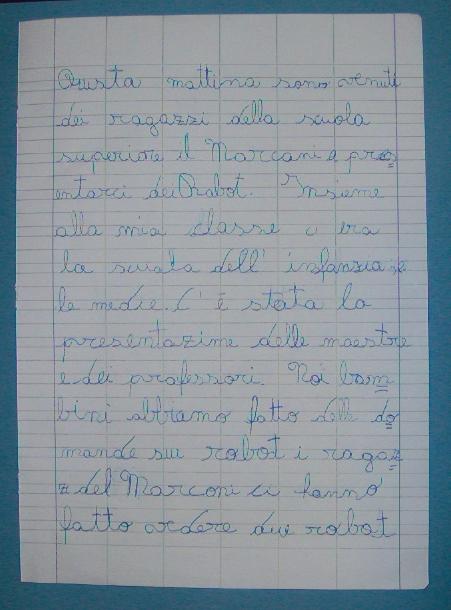 Questa mattina sono venuti
dei ragazzi della scuola
superiore il Marconi a pres
entarci dei Robot. Insieme
alla mia classe c era
la scuola dell' infanzia e
le medie. C' è stata la
presentazione delle maestre
e dei professori. Noi bam
bini abbiamo fatto delle do
mande sui robot i ragaz
zi del Marconi ci hanno
fatto vedere due robot